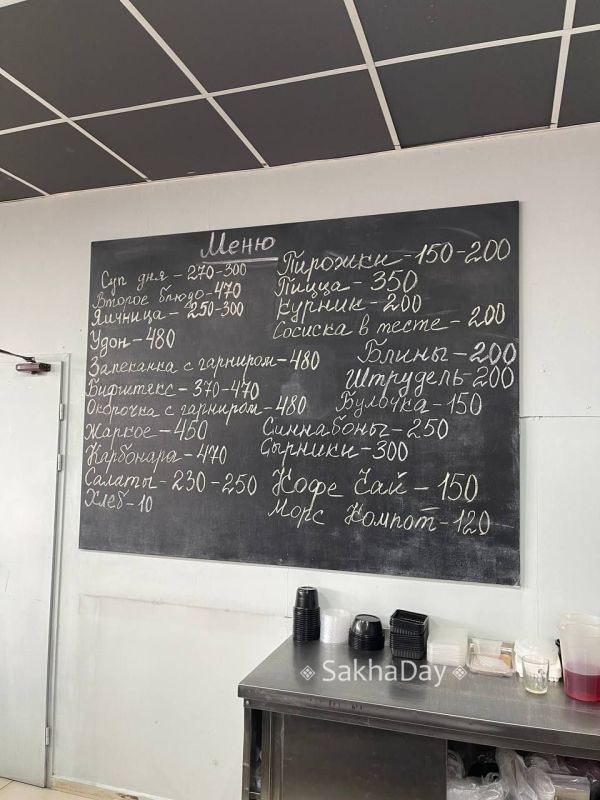 Меню
Суп дня - 270-300
Второе блюдо - 470
Яичница - 250-300
Удон - 480
Запеканка с гарниром - 480
Бифштекс - 370-470
Окорочка с гарниром - 480
Жаркое - 450
Карбонара - 470
Салаты - 230-250
Хлеб - 10
Пирожки - 150-200
Пицца - 350
Курник - 200
Сосиска в тесте - 200
Блины - 200
Штрудель - 200
Булочка - 150
Синнабоны - 250
Сырники - 300
Кофе Чай - 150
Морс Компот - 120
SakhaDay